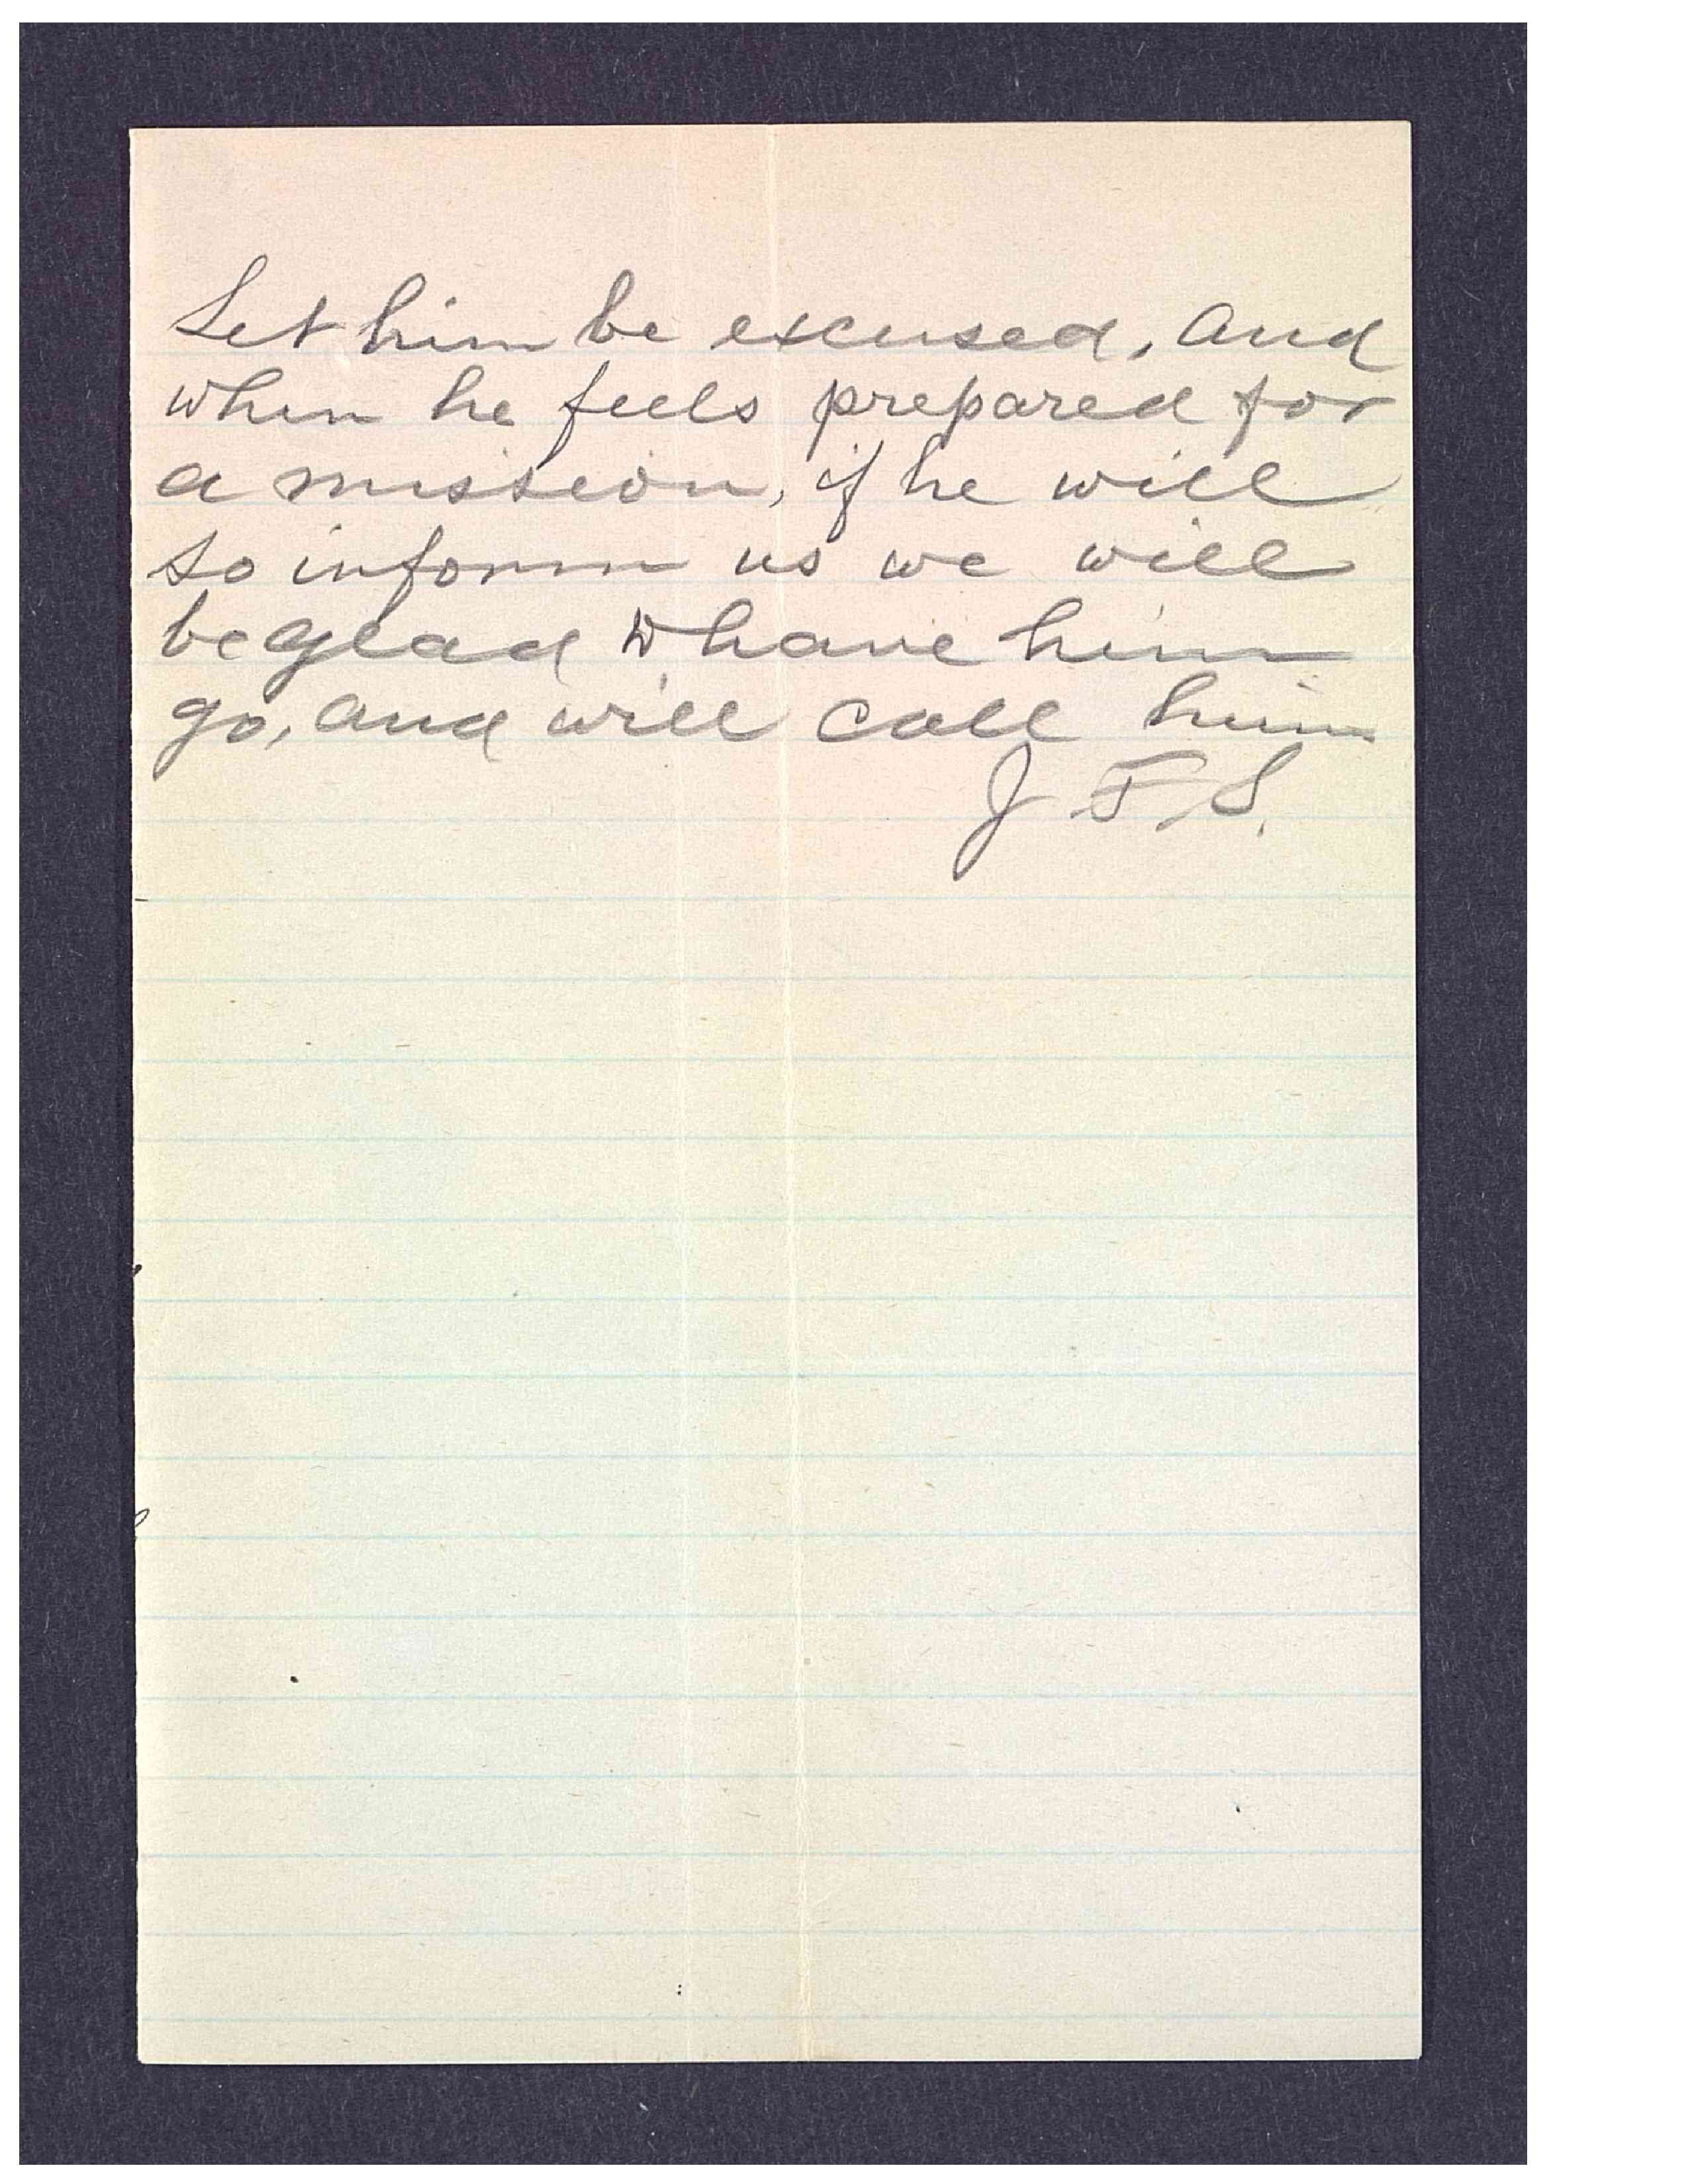 Let him be excused, and
when he feels prepared for
a mission, if he will
so inform us we will
be glad to have him
go, and will call him
J F. S.